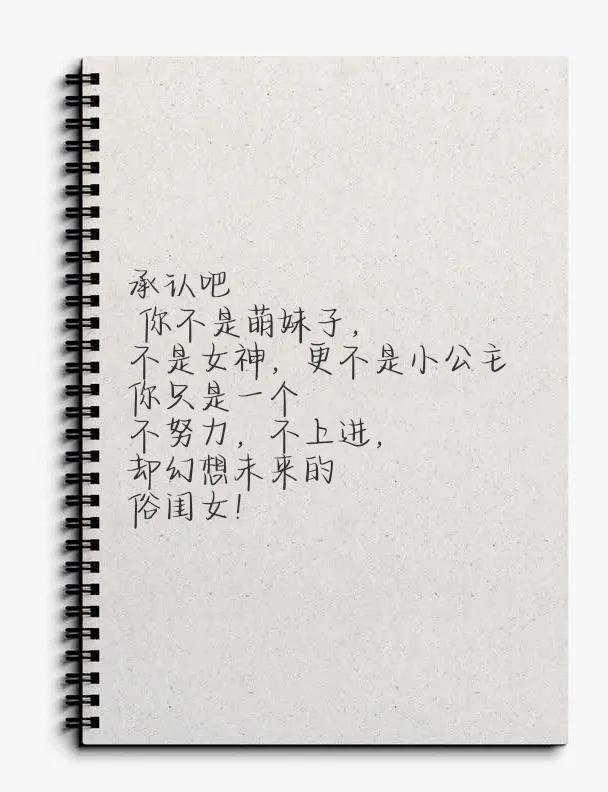 承认吧
你不是萌妹子，
不是女神，更不是小公主
你只是一个
不努力，不上进，
却幻想未来的
俗闺女！